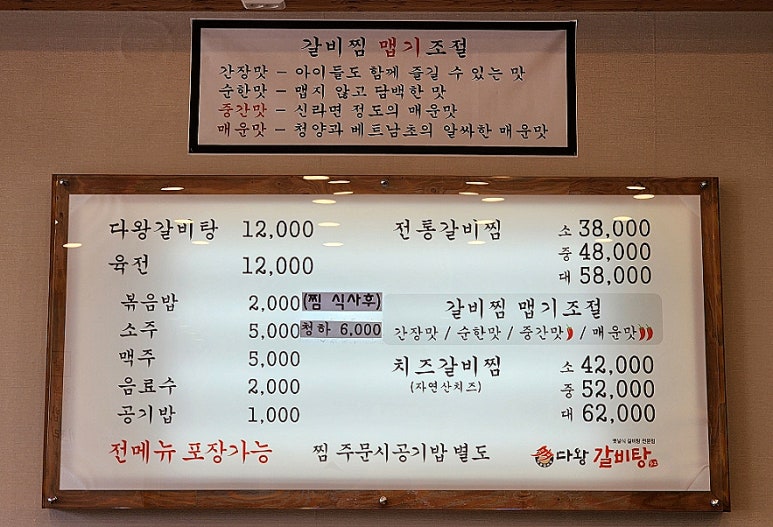 갈비찜 맵기조절
간장맛 - 아이들도 함께 즐길 수 있는 맛
순한맛 - 맵지 않고 담백한 맛
중간맛 - 신라면 정도의 매운맛
매운맛 - 청양과 베트남초의 알싸한 매운맛
다왕갈비탕 12,000
육전 12,000
볶음밥 2,000 (찜 식사후)
소주 5,000 청하 6,000
맥주 5,000
음료수 2,000
공기밥 1,000
전통갈비찜 소 38,000
중 48,000
대 58,000
갈비찜 맵기조절
간장맛 / 순한맛 / 중간맛 / 매운맛
치즈갈비찜 소 42,000
(자연산치즈) 중 52,000
대 62,000
전메뉴 포장가능
찜 주문시공기밥 별도
옛날식 갈비탕 전문점
다왕 갈비탕